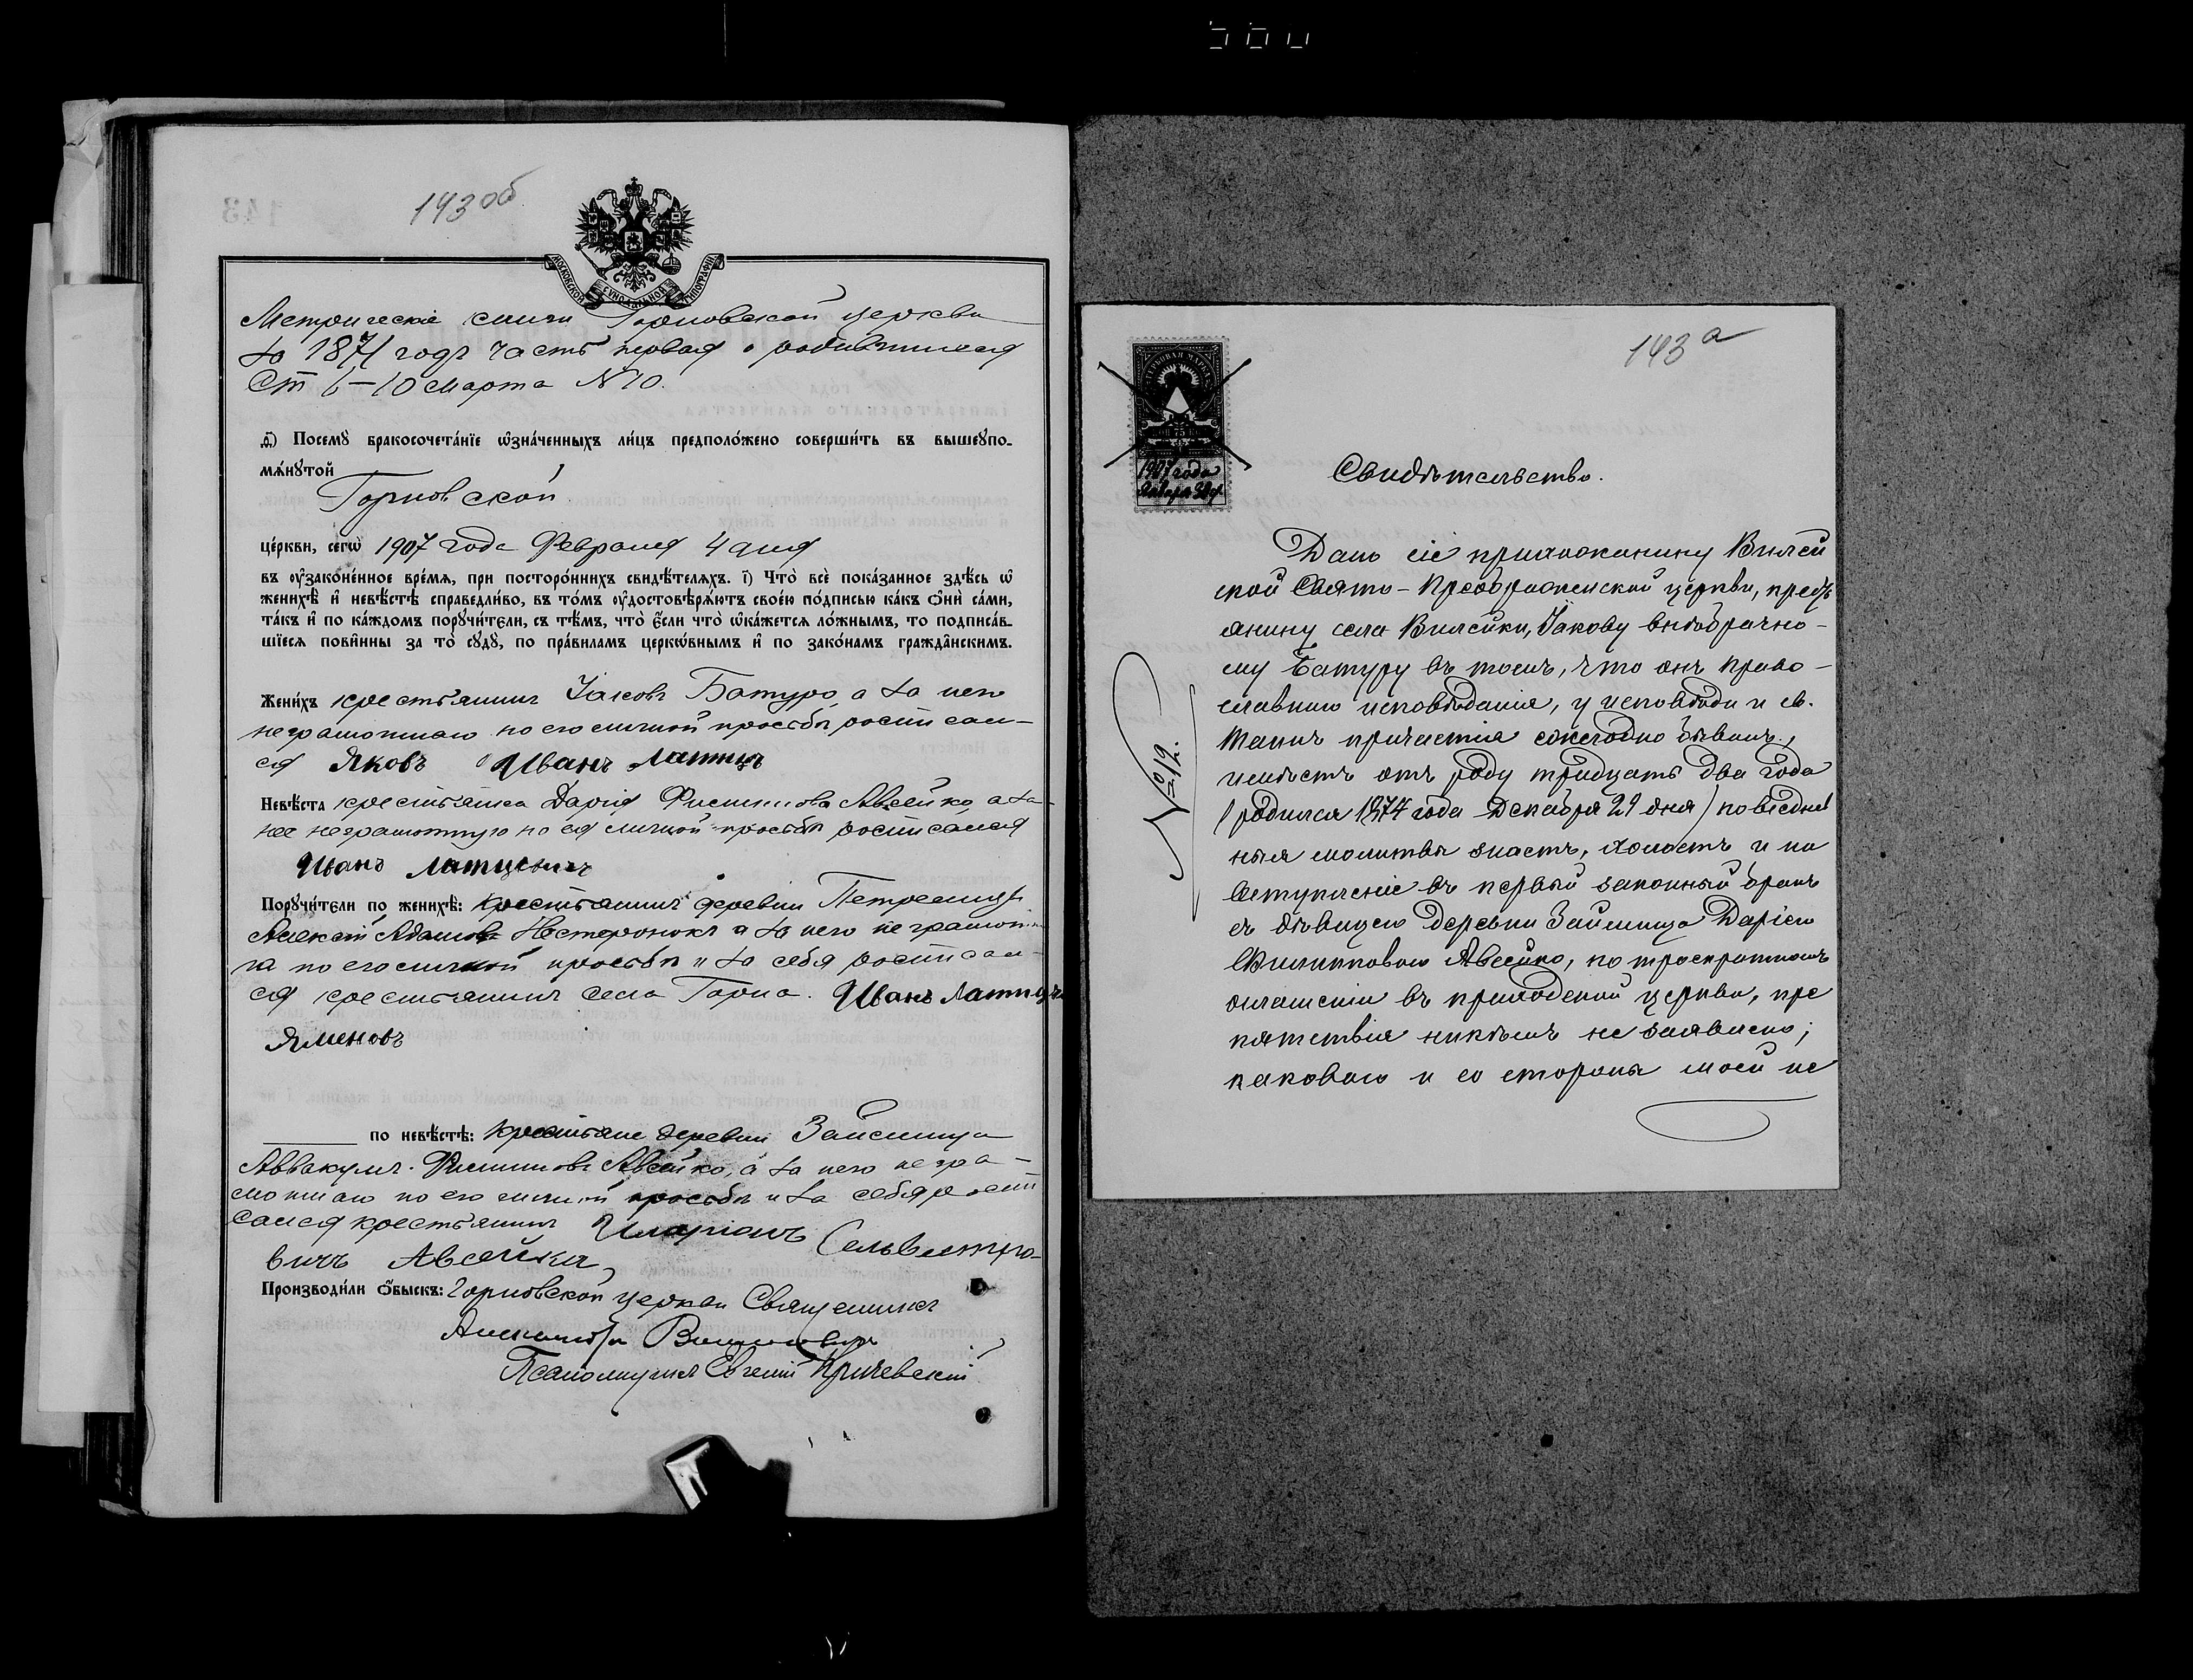 143 об.
МОСКОВСКОЙ СѴНОДАЛЬНОЙ ТИПОГРАФІИ
Метрическіе книги Горновской церкви
за 1871 годъ часть первая о родившихся
Ст 6–10 марта № 10.
д҃) Посемꙋ бракосочета́нїе ѡ҆зна́ченныхъ ли́цъ предположено соверши́ть въ вышеꙋпо-
мѧ́нꙋтой
Горновской
це́ркви, сегѡ̀ 1907 года Февраля 4 дня
въ ᲂу҆зако́ненное вре́мѧ, при посторо́ннихъ свидѣ́телѧхъ. і҃) Что̀ всѐ пока́занное здѣ́сь ѡ҆
женихѣ̀ и҆ невѣ́стѣ справедли́во, въ то́мъ ᲂу҆достовѣрѧ́ютъ свое́ю по́дписью ка́къ ѻ҆нѝ са́ми,
та́къ и҆ по ка́ждомъ порꙋчи́тели, съ тѣ́мъ, что̀ є҆́сли что̀ ѡ҆ка́жетсѧ ло́жнымъ, то подписа́в-
шїесѧ пови́нны за то̀ сꙋдꙋ̀, по пра́виламъ церкѡ́внымъ и҆ по зако́намъ гражда́нскимъ.
Жени́хъ крестьянинъ Іаковъ Батура, а за него
неграмотнаго по его личной просьбѣ росписал-
ся Яковъ Иванъ Лаппицъ
Невѣ́ста крестьянка Дарія Филиппова Авсейко, а за
нее неграмотную по ея личной просьбѣ росписался
Иванъ
Порꙋчи́тели по женихѣ̀: крестьянинъ деревни
Алексѣй Адамовъ Нестеронокъ а за него неграмотна-
га по его личной просьбѣ и за себя росписал-
ся крестьянинъ села Горна. Иванъ
по невѣ́стѣ: крестьяне деревни Займища
Аввакумъ Филипповъ Авсейко, а за него негра-
мотнаго по его личной просьбѣ и за себя роспи
сался крестьянинъ Иларіонъ Сельвестро-
вичъ Авсейка
Производи́ли ѻ҆́быскъ: Горновской церкви Священникъ
Александръ
Псаломщикъ Евгеній Кричевскій
143 а
ГЕРБОВАЯ МАРКА
75
1907 года
Января 30 д.
Свидѣтельство.
№ 19.
Дано сіе прихожанину Вилей
ской Свято-Преображенской церкви, крестъ
янину села Вилейки, Іакову внѣбрачно-
му Батуру въ томъ, что онъ право-
славнаго исповѣданія, у исповѣди и св.
Таинъ причастія ежегодно бывалъ,
имѣетъ отъ роду тридцать два года
(родился 1874 года Декабря 29 дня) повседнев
ныя молитвы знаетъ, холостъ и на
вступленіе въ первый законный бракъ
съ дѣвицею деревни Займища Даріею
Филипповою Авсейко, по троекратномъ
оглашеніи въ приходской церкви, пре
пятствія никѣмъ не заявлено;
каковаго и со стороны моей не